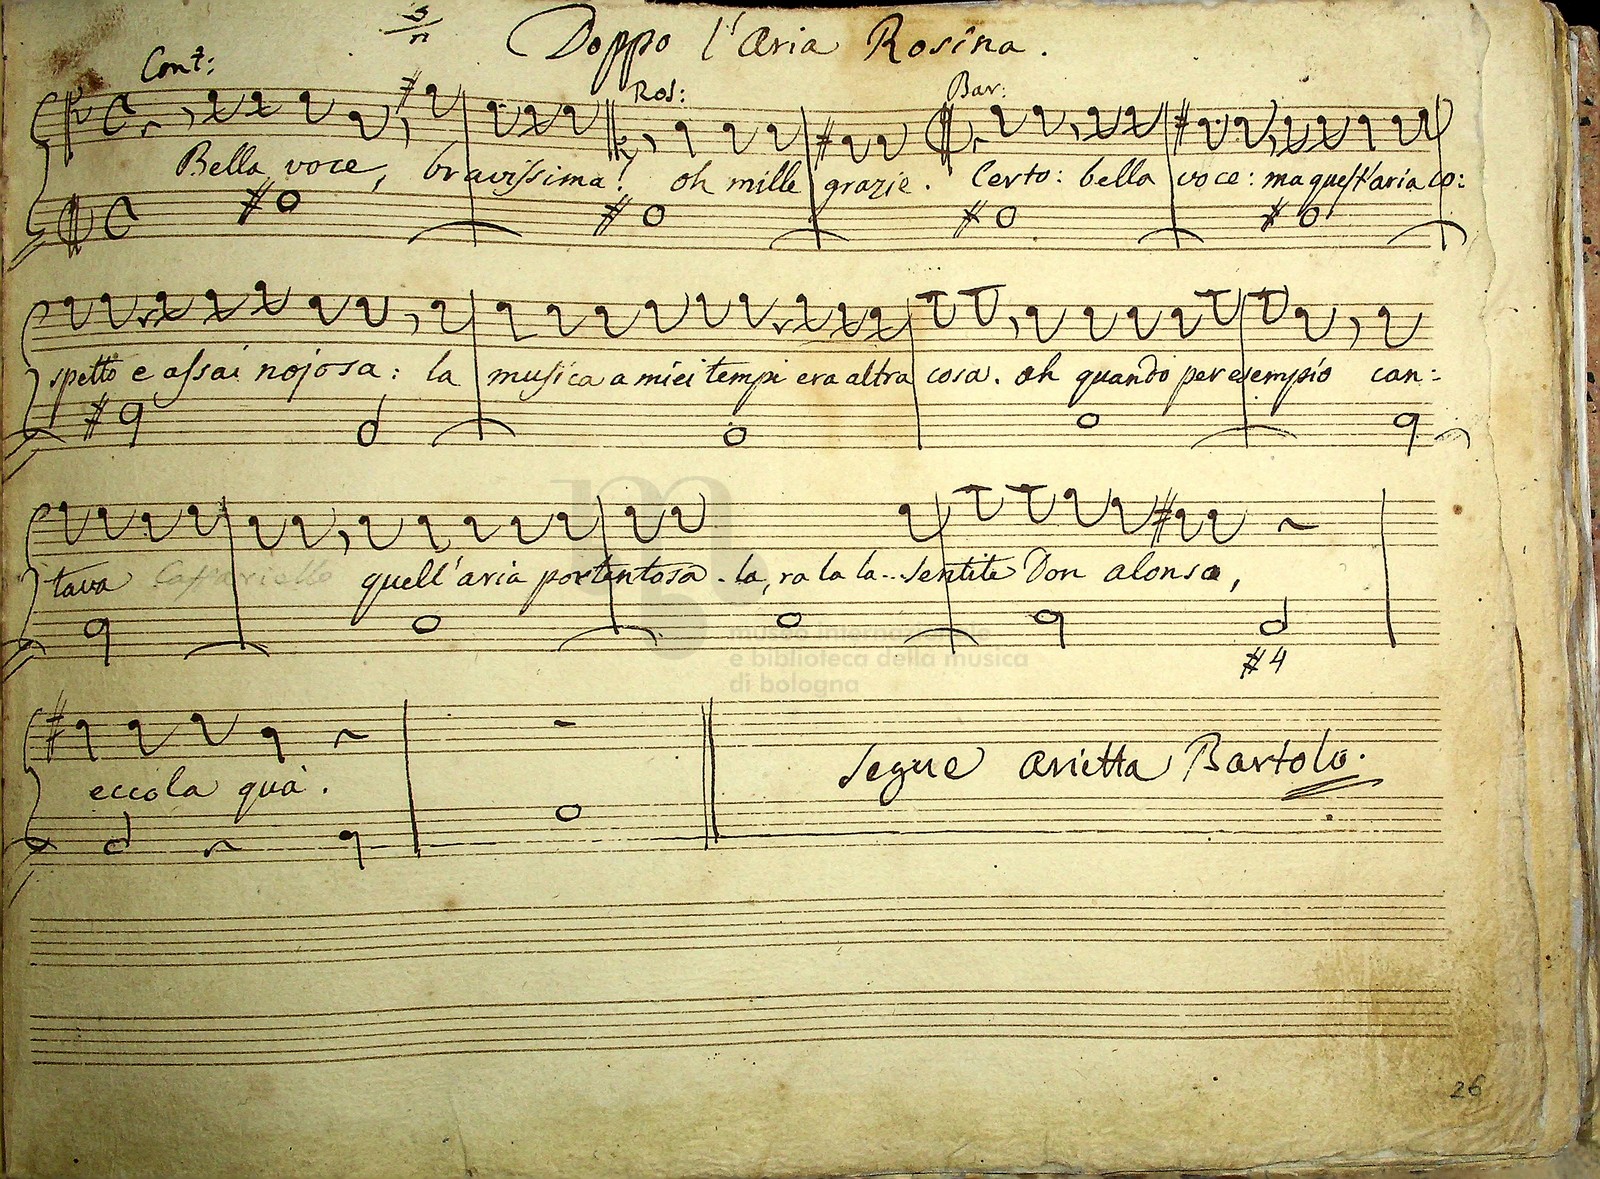 Doppo l'Aria Rosina.
Cont: Ros: Bar:
Bella voce, bravissima! oh mille grazie. Certo: bella voce: ma quest'aria co:
spetto e assai nojosa: la musica a miei tempi era altra cosa. oh quando per esempio can:
tava Caffariello quell'aria portentosa. la, ra la la... sentite Don alonso,
#4
eccola quà.
Segue arietta Bartolo.
museo internazionale
e biblioteca della musica
di bologna
26